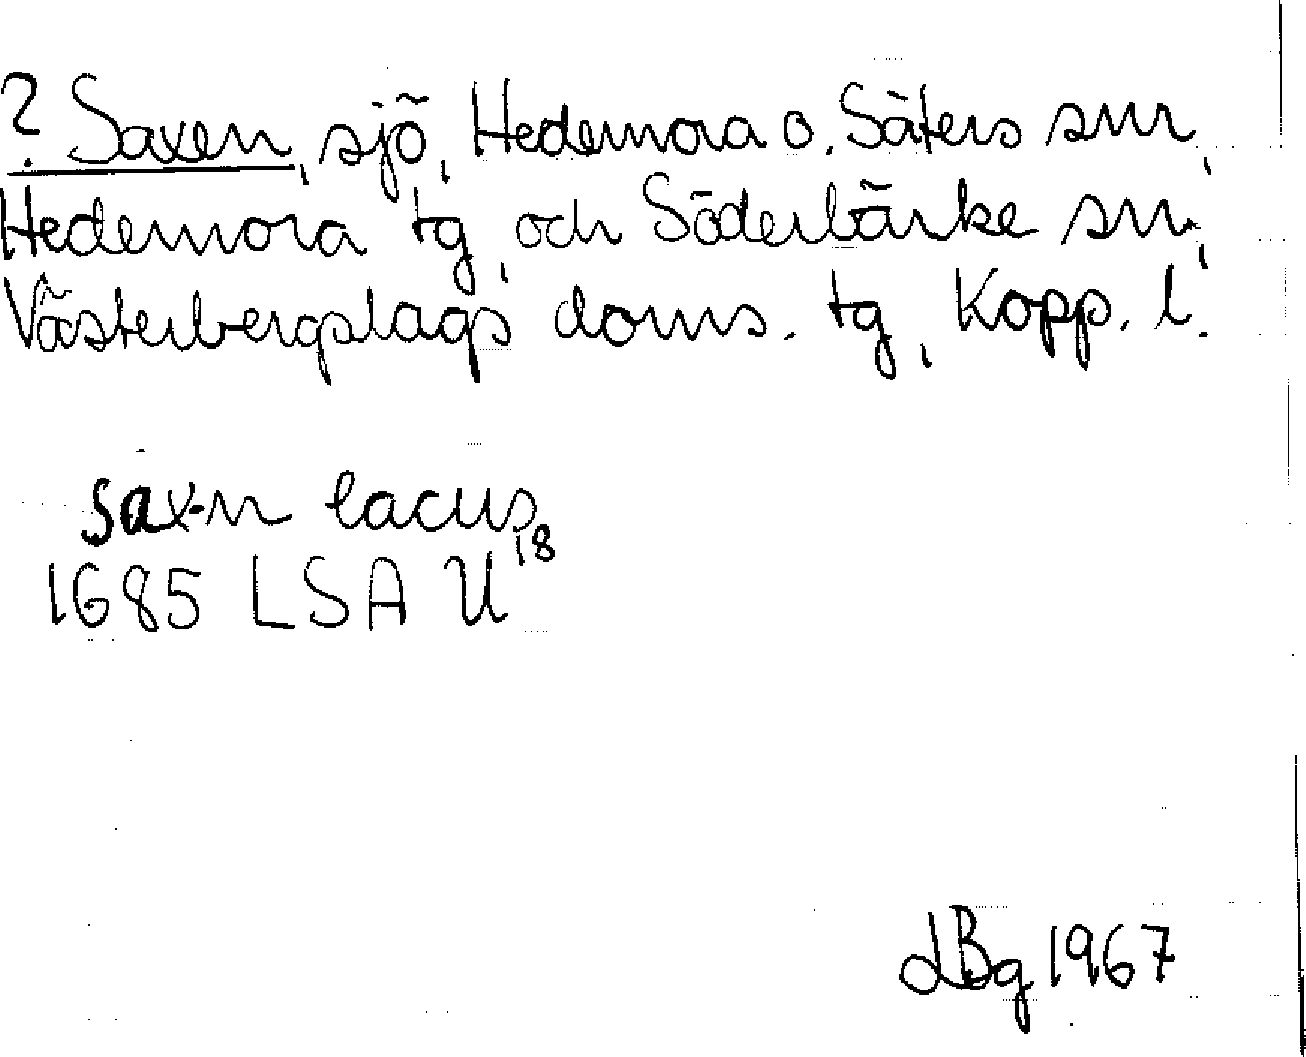 ? Saxen, sjö, Hedemora o. Säters snr,
Hedemora tg, och Söderbärke sn,
Västerbergslags doms. tg, Kopp. l.
sax-n lacus
1685 LSA U18
LBg 1967